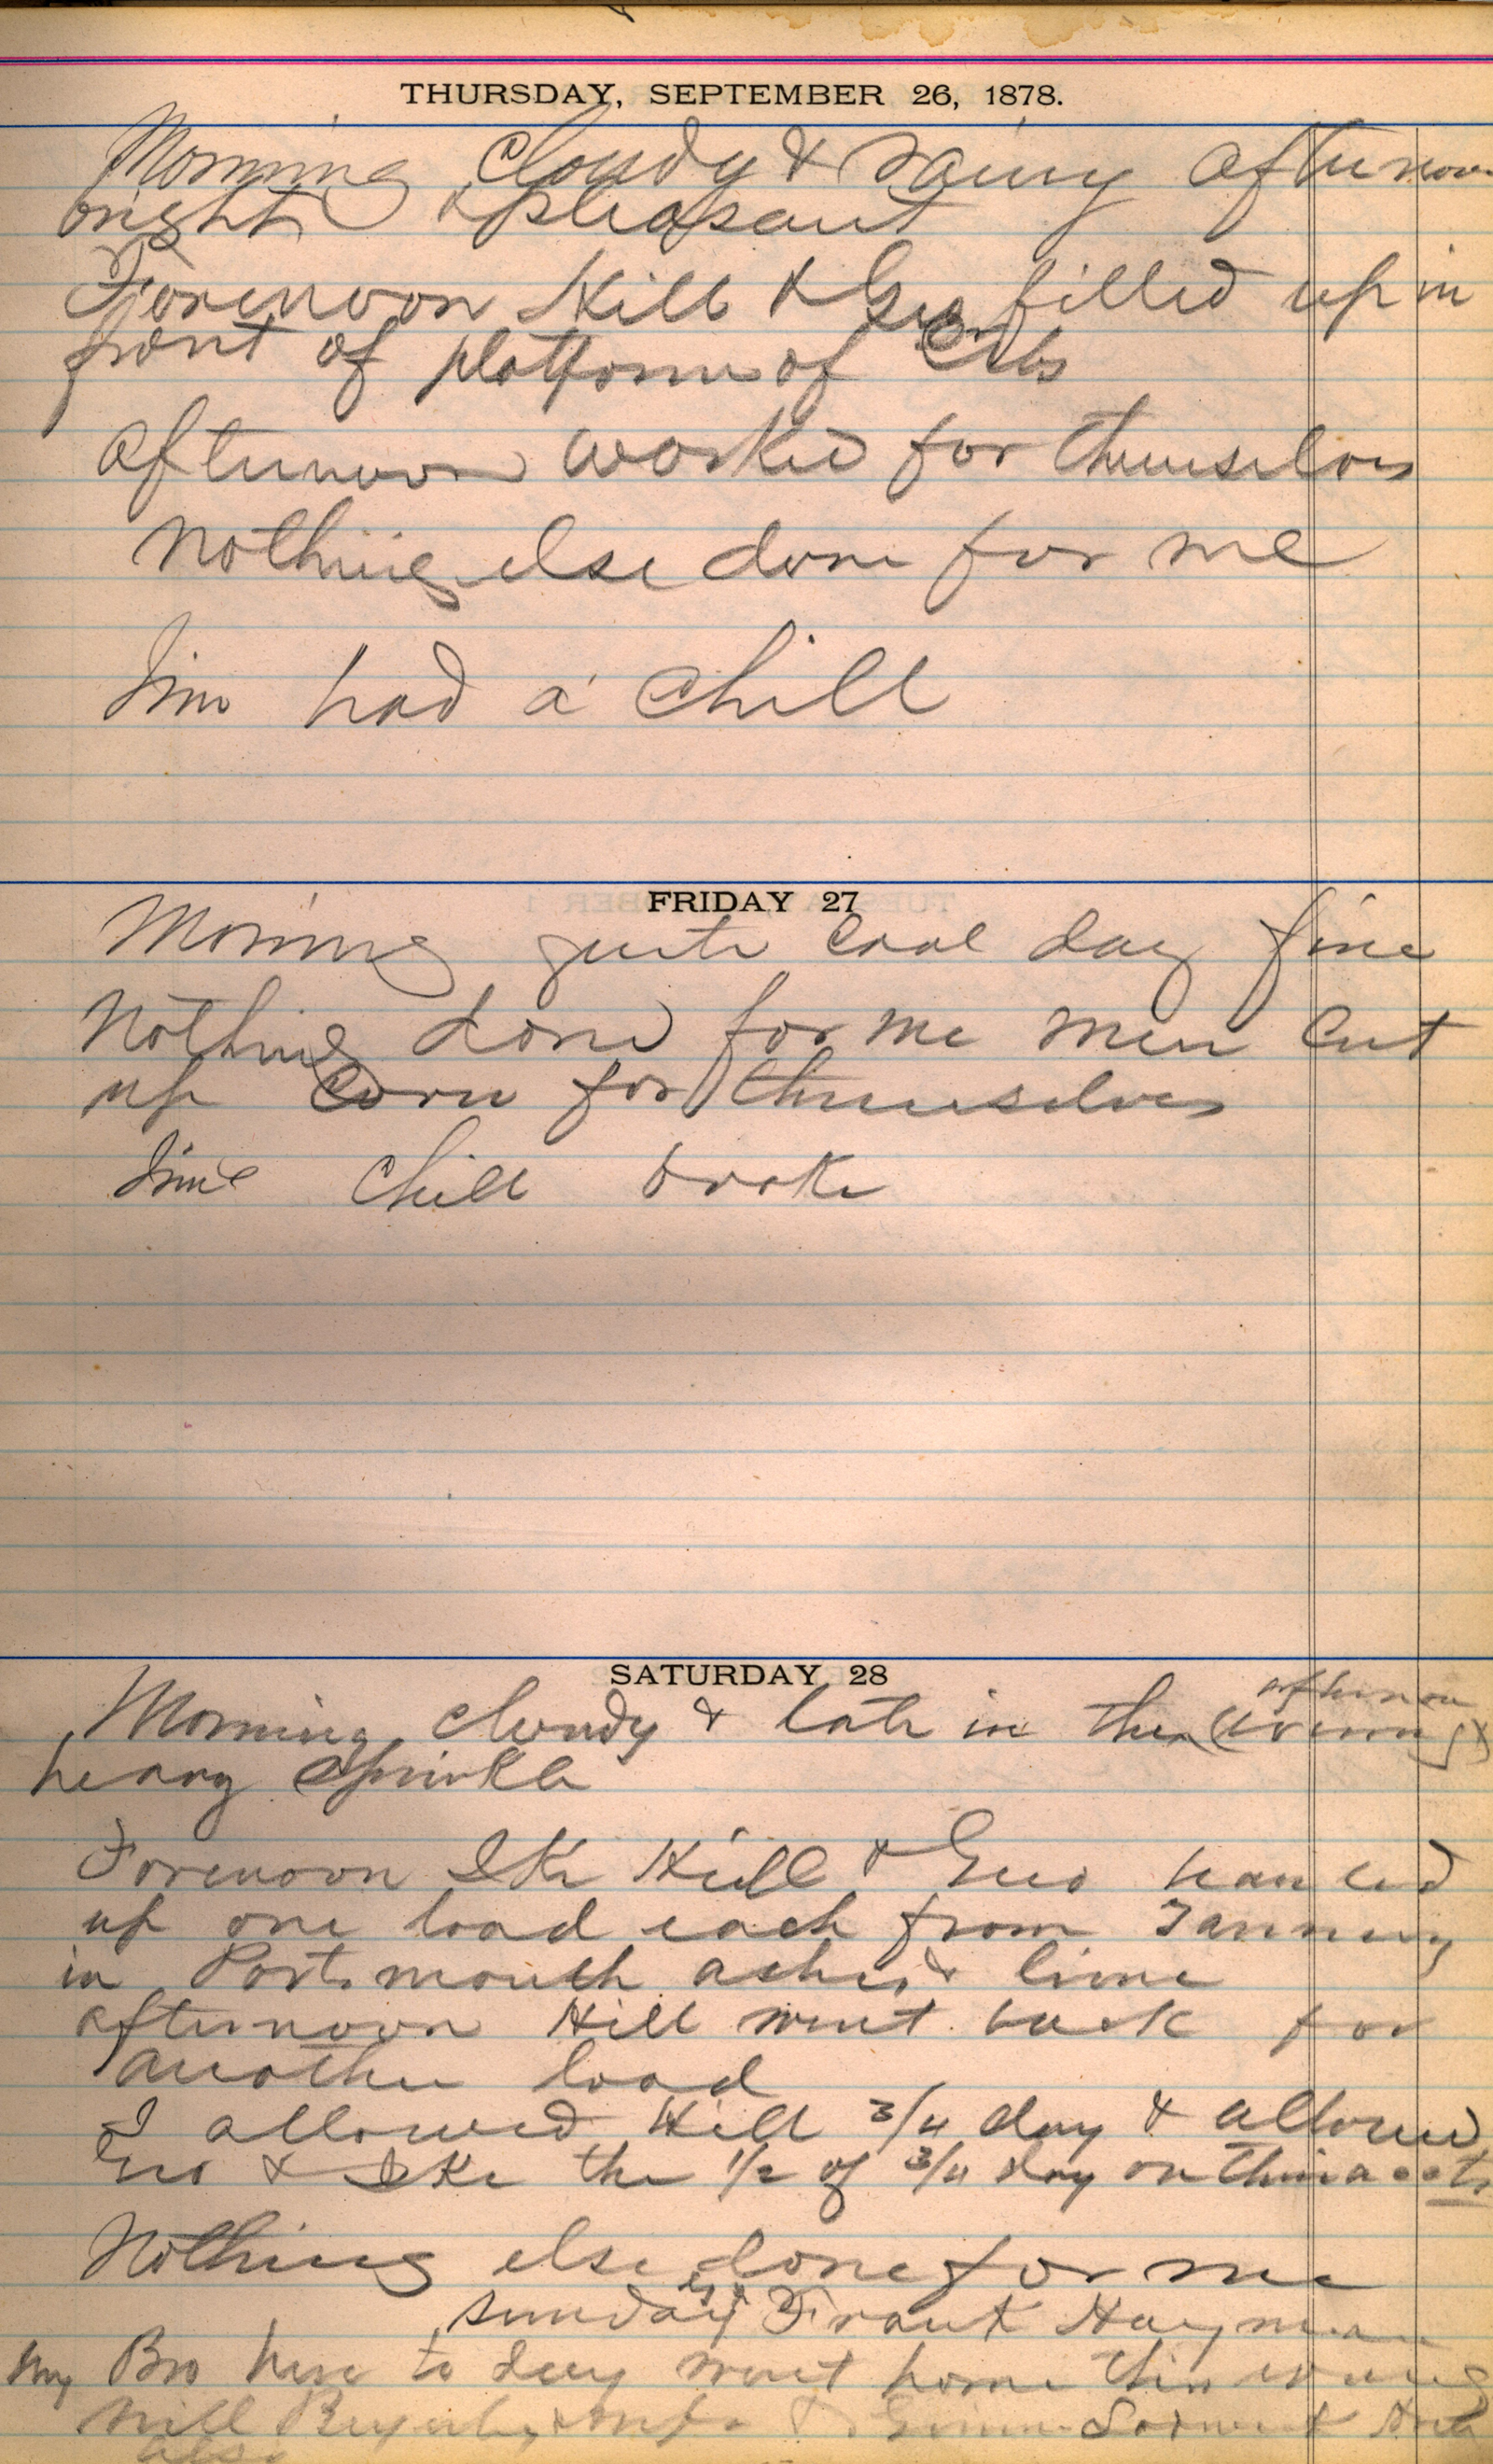 THURSDAY, SEPTEMBER 26, 1878.
Morning Cloudy & rainy afternoon
bright & pleasant
Forenoon Hill & Geo filled up in
front of platform of Cribs
afternoon worked for themselves
Nothing else done for me
Jim had a chill
FRIDAY 27
Morning quite Cool day fine
Nothing done for me men Cut
up Corn for themselves
Jim's Chill broke
SATURDAY 28
afternoon
Morning cloudy & late in the (evening)
heavy sprinkle
Forenoon Ike Hill & Geo hauled
up one load each from Tannery
in Portsmouth ashes & lime
afternoon Hill went back for
another load
I allowed Hill 3/4 day & allowed
Geo & Ike the 1/2 of 3/4 day on their accts
Nothing else done for me
Sunday Frank Hayman
my Bro here to day went home this evening
Will &
also